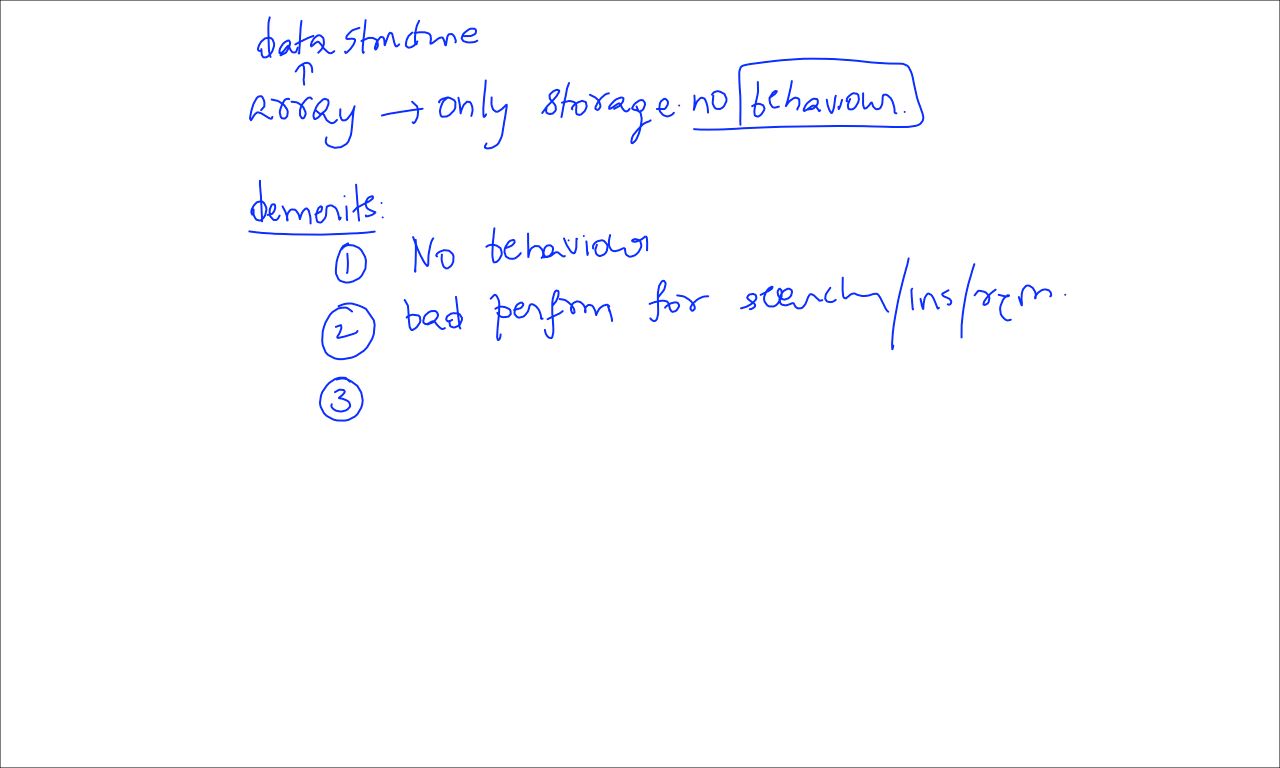 data structure
↑
array → only storage. no behaviour.
demerits:
① No behaviour
② bad perfrm for search/ins/rem.
③